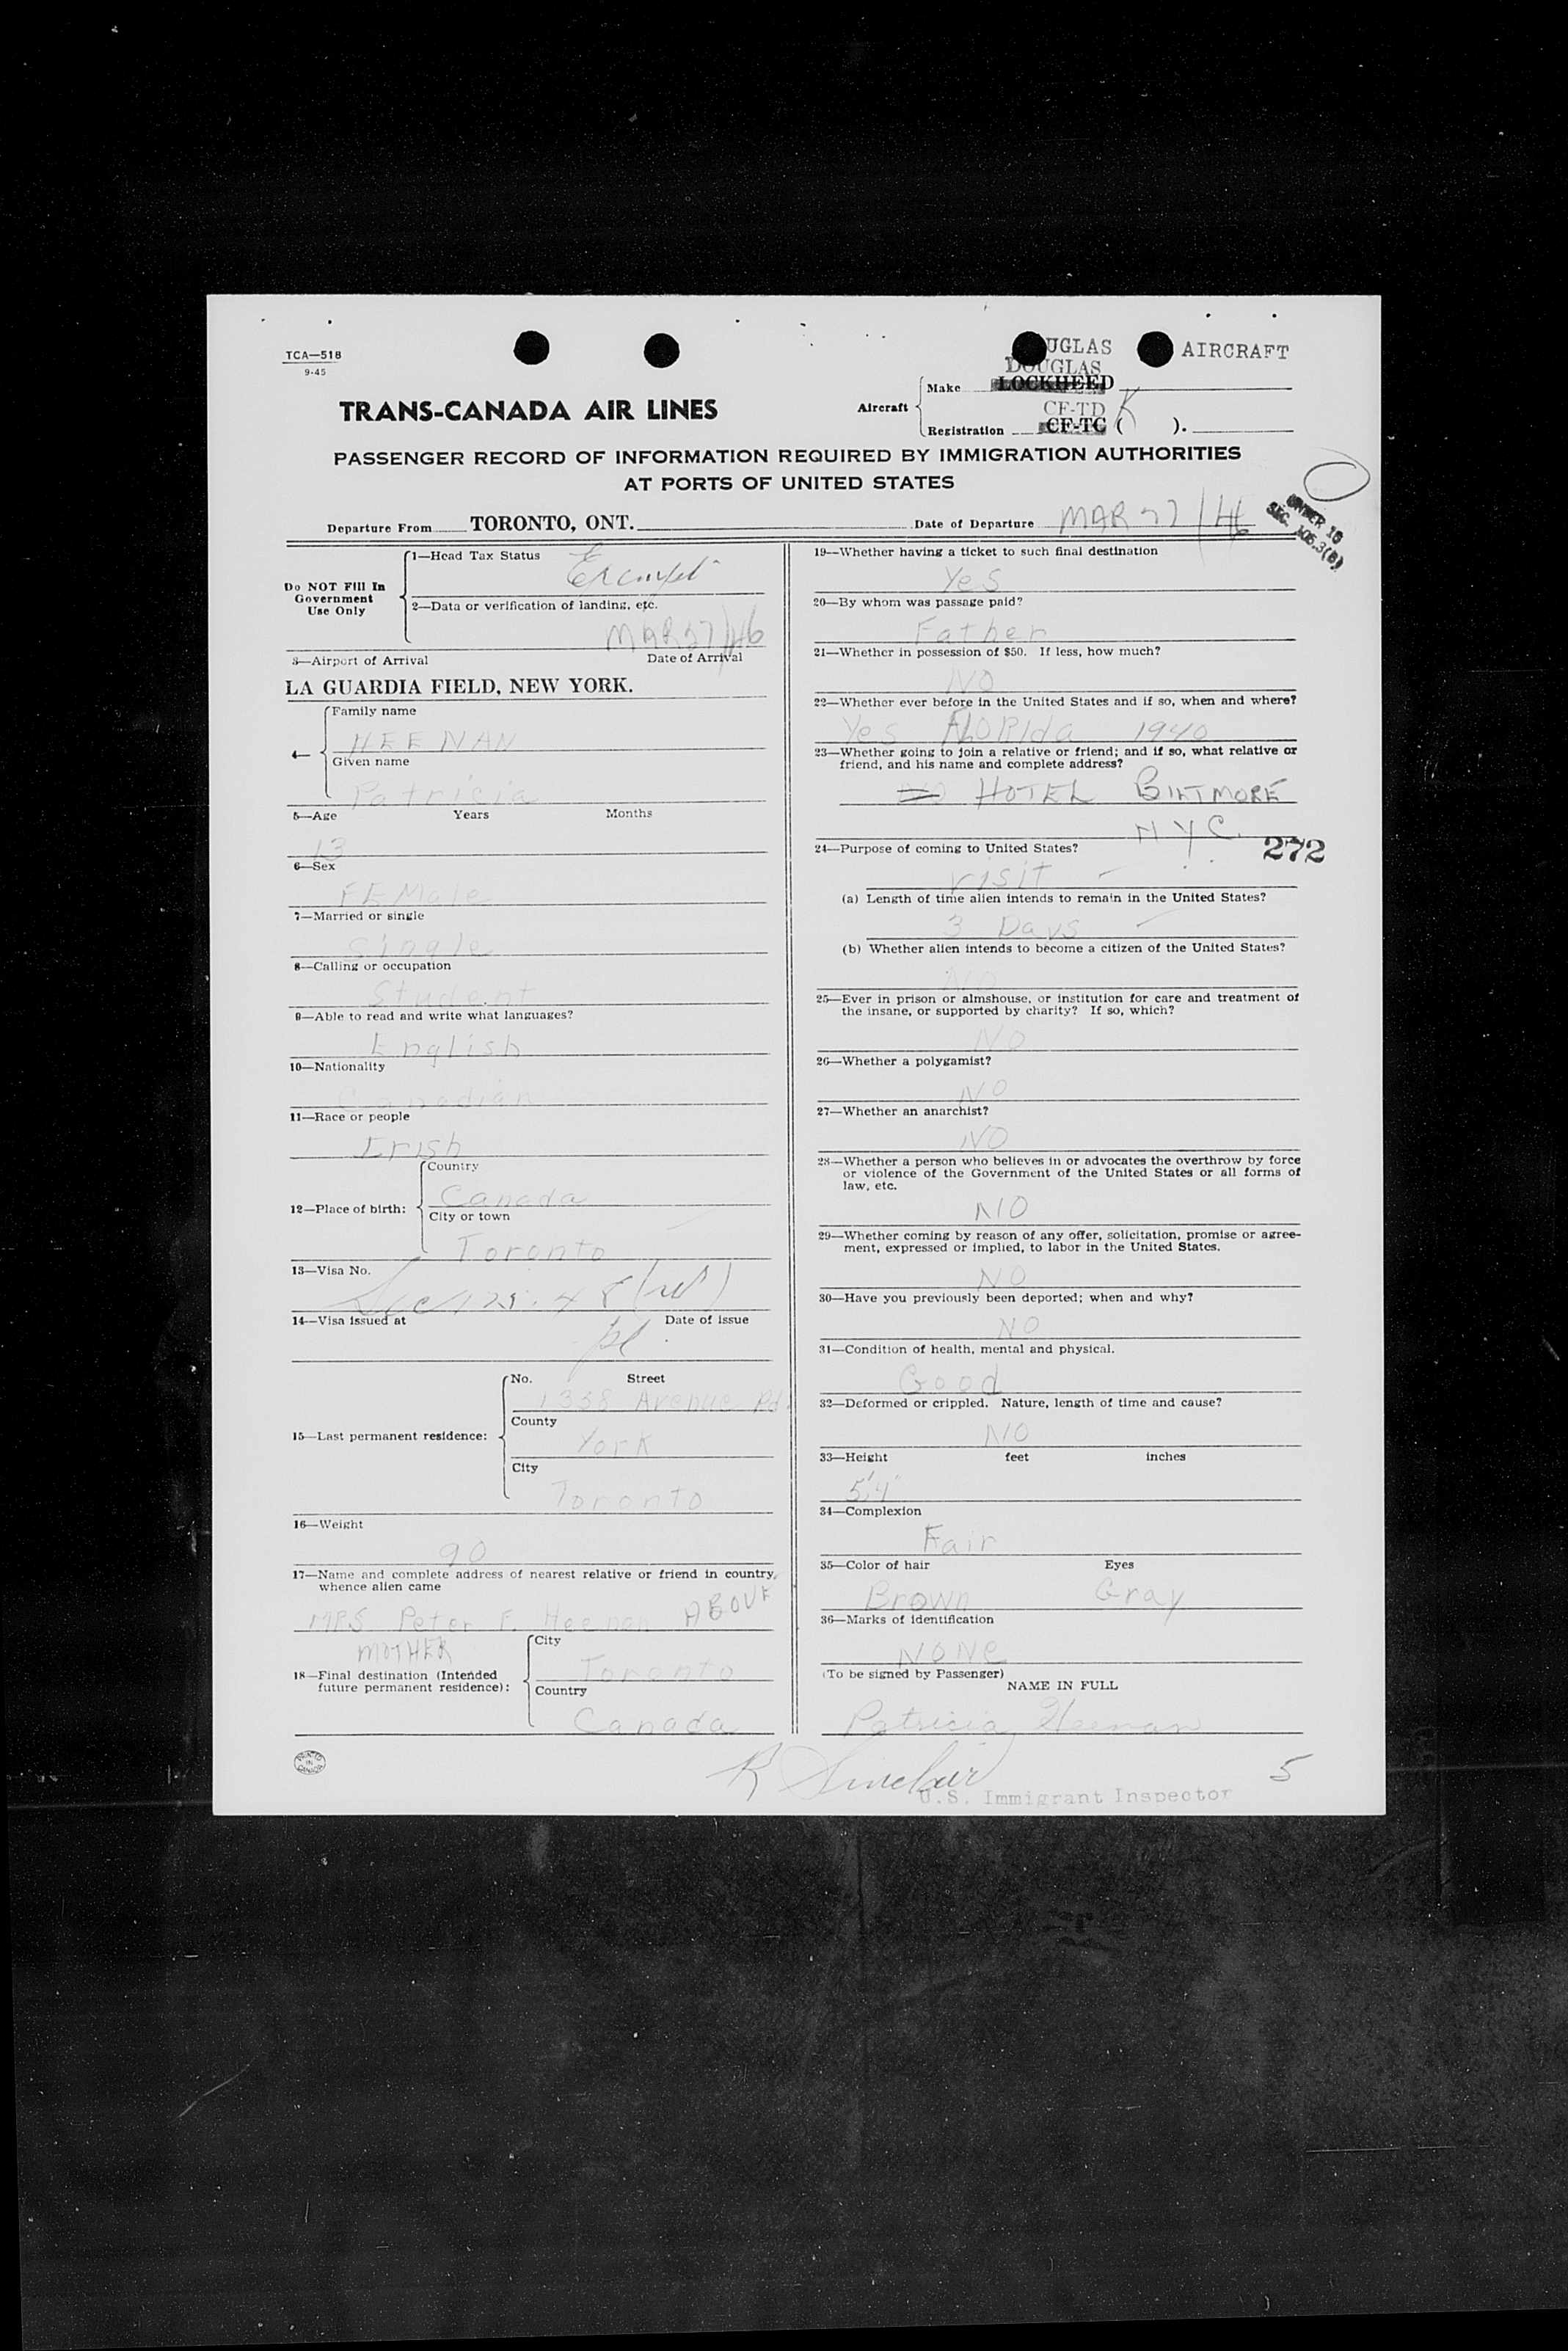 TCA—518
9-45
UGLAS AIRCRAFT
DOUGLAS
Make LOCKHEED
TRANS-CANADA AIR LINES
Aircraft
CF-TD K
Registration CF-TC ( ).
PASSENGER RECORD OF INFORMATION REQUIRED BY IMMIGRATION AUTHORITIES
AT PORTS OF UNITED STATES
UNDER 16
SEC. 105.3(B)
Departure From TORONTO, ONT. Date of Departure MAR 27/46
Do NOT Fill In
Government
Use Only
1—Head Tax Status
Exempt
2—Data or verification of landing, etc.
MAR 27/46
3—Airport of Arrival Date of Arrival
LA GUARDIA FIELD, NEW YORK.
4—
Family name
HEENAN
Given name
Patricia
5—Age Years Months
13
6—Sex
FEMale
7—Married or single
Single
8—Calling or occupation
Student
9—Able to read and write what languages?
English
10—Nationality
Canadian
11—Race or people
Irish
12—Place of birth:
Country
Canada
City or town
Toronto
13—Visa No.
14—Visa issued at Date of issue
15—Last permanent residence:
No. Street
1338 Avenue Rd.
County
York
City
Toronto
16—Weight
90
17—Name and complete address of nearest relative or friend in country,
whence alien came
MRS Peter F. Heenan ABOVE
MOTHER
18—Final destination (Intended
future permanent residence):
City
Toronto
Country
Canada
PRINTED
IN
CANADA
19—Whether having a ticket to such final destination
Yes
20—By whom was passage paid?
Father
21—Whether in possession of $50. If less, how much?
NO
22—Whether ever before in the United States and if so, when and where?
Yes FLORIda 1940
23—Whether going to join a relative or friend; and if so, what relative or
friend, and his name and complete address?
HOTEL BILTMORE
N Y C.
24—Purpose of coming to United States?
272
visit -
(a) Length of time alien intends to remain in the United States?
3 Days
(b) Whether alien intends to become a citizen of the United States?
NO
25—Ever in prison or almshouse, or institution for care and treatment of
the insane, or supported by charity? If so, which?
NO
26—Whether a polygamist?
NO
27—Whether an anarchist?
NO
28—Whether a person who believes in or advocates the overthrow by force
or violence of the Government of the United States or all forms of
law, etc.
NO
29—Whether coming by reason of any offer, solicitation, promise or agree-
ment, expressed or implied, to labor in the United States.
NO
30—Have you previously been deported; when and why?
NO
31—Condition of health, mental and physical.
Good
32—Deformed or crippled. Nature, length of time and cause?
NO
33—Height feet inches
5'4"
34—Complexion
Fair
35—Color of hair Eyes
Brown Gray
36—Marks of identification
NONe
(To be signed by Passenger)
NAME IN FULL
Patricia Heenan
R Sinclair
U.S. Immigrant Inspector
5